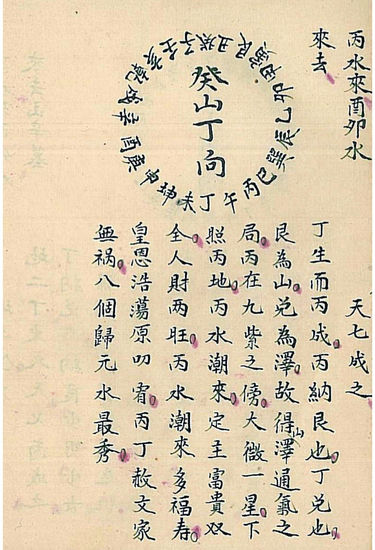 丙水來酉卯水
來去。
癸山丁向
壬子癸丑艮寅甲卯乙辰巽巳丙午丁未坤申庚酉辛戌乾亥
天七成之
丁生而丙成丙納艮也。丁兌也。
艮為山。兌為澤。故得山澤通氣之
局。丙在九紫之傍。大微一星。下
照丙地。丙水潮來。定主富貴双
全。人財两旺。丙水潮來多福寿。
皇恩浩蕩原叨宥。丙丁赦文家
無祸。八個歸元水最秀。